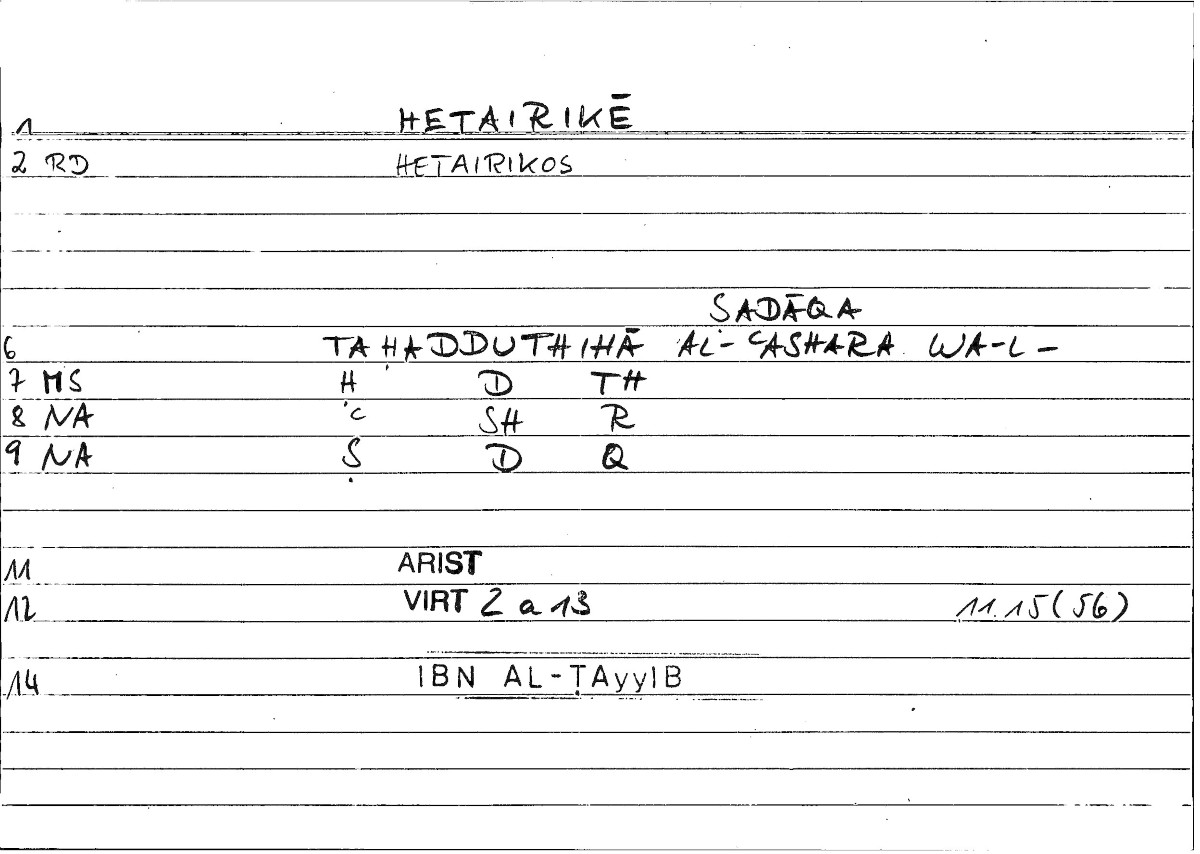 1 HETAIRIKĒ
2 RD HETAIRIKOS
SADĀQA
6 TAḤADDUTHIHĀ AL-ʿASHARA WA-L-
7 MS Ḥ D TH
8 NA ʿ SH R
9 NA Ṣ D Q
11 ARIST
12 VIRT 2 a 13 11.15(56)
14 IBN AL-ṬAyyIB